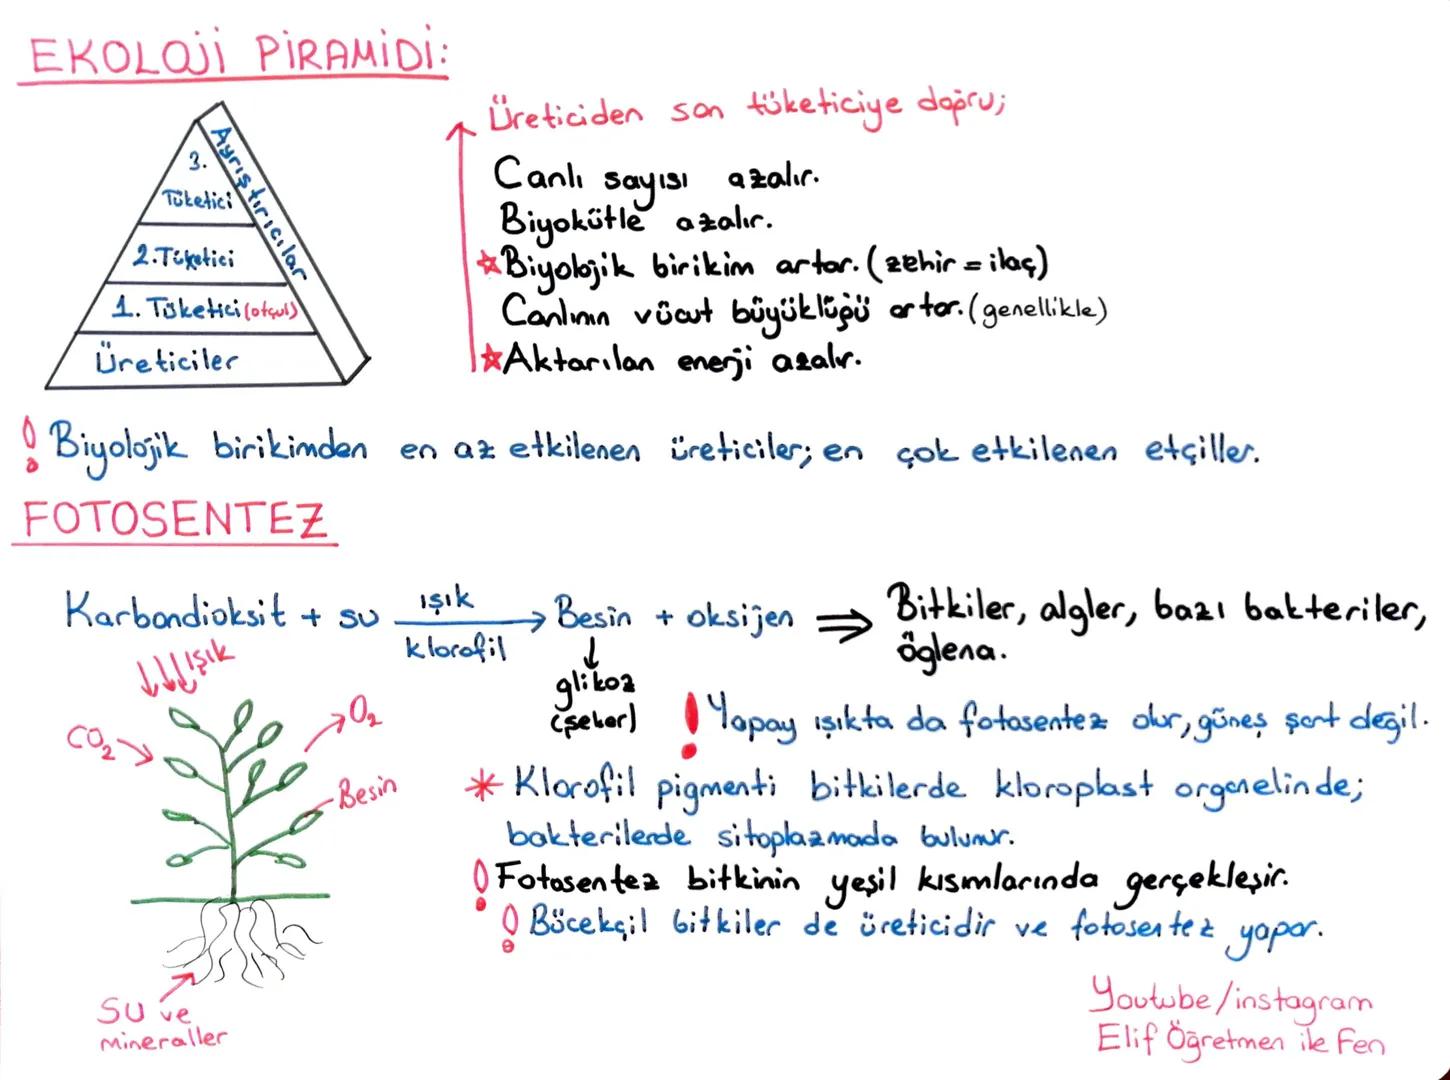 EKOLOJİ PİRAMİDİ:
Üreticiden son tüketiciye doğru;
Ayrıştırıcılar
3.
Tüketici
2.Tüketici
1. Tüketici (otçul)
Üreticiler
Canlı sayısı azalır.
Biyokütle azalır.
☆Biyolojik birikim artar. (zehir = ilaç)
Canlının vücut büyüklüğü artar. (genellikle)
☆Aktarılan enerji azalır.
! Biyolojik birikimden en az etkilenen üreticiler; en çok etkilenen etçiller.
FOTOSENTEZ
Karbondioksit + su ışık klorofil → Besin + oksijen ⇒ Bitkiler, algler, bazı bakteriler,
öglena.
↓
glikoz
(şeker)
Işık
CO₂
O₂
Besin
Su ve
mineraller
! Yapay ışıkta da fotosentez olur, güneş şart değil.
* Klorofil pigmenti bitkilerde kloroplast organelinde;
bakterilerde sitoplazmada bulunur.
! Fotosentez bitkinin yeşil kısımlarında gerçekleşir.
! Böcekçil bitkiler de üreticidir ve fotosentez yapar.
Youtube/instagram
Elif Öğretmen ile Fen